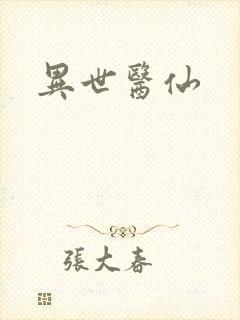 異世醫仙
張大春